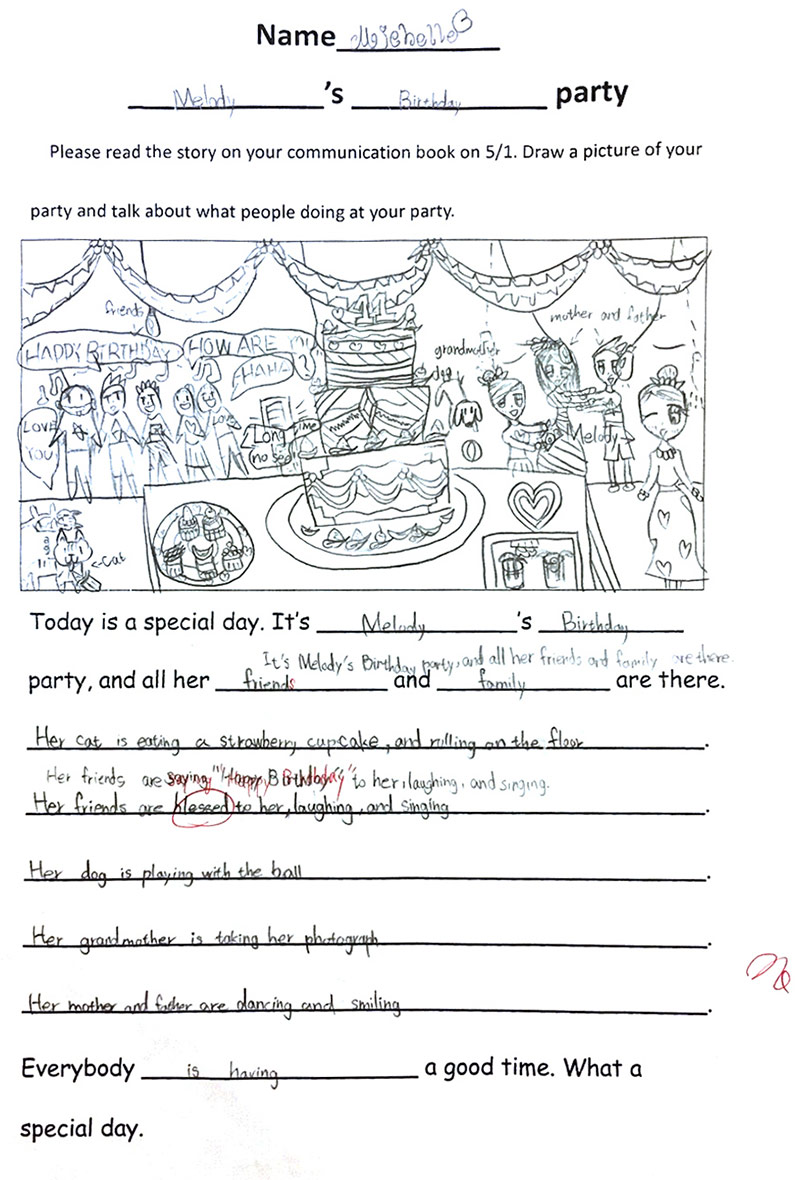 Name Michelle
Melody 's Birthday party
Please read the story on your communication book on 5/1. Draw a picture of your
party and talk about what people doing at your party.
friends
mother and father
11
HAPPY BIRTHDAY
HOW ARE
grandmother
HAHA
dog
LOVE YOU
Long time
no see
Melody
cat
Today is a special day. It's Melody 's Birthday
It's Melody's Birthday party, and all her friends and family are there.
party, and all her friends and family are there.
Her cat is eating a strawberry cupcake, and rolling on the floor.
Her friends are saying "Happy Birthday" to her, laughing, and singing.
Her friends are blessed to her, laughing, and singing.
Her dog is playing with the ball.
Her grandmother is taking her photograph.
Her mother and father are dancing and smiling.
Everybody is having a good time. What a
special day.